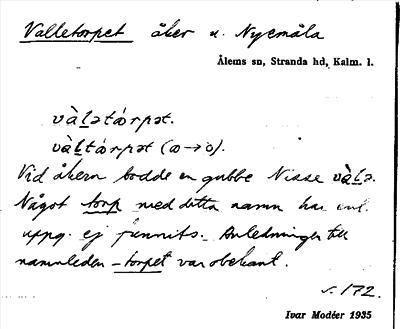 Valletorpet åker u. Nyemåla
Ålems sn, Stranda hd, Kalm. l.
và̀lǝtórpǝt.
và̀ltórpǝt (ω→o).
Vid åkern bodde en gubbe Nisse và̀lǝ.
Något torp med detta namn har enl.
uppg. ej funnits. Anledningen till
namnleden -torpet var obekant.
s. 172.
Ivar Modéer 1935